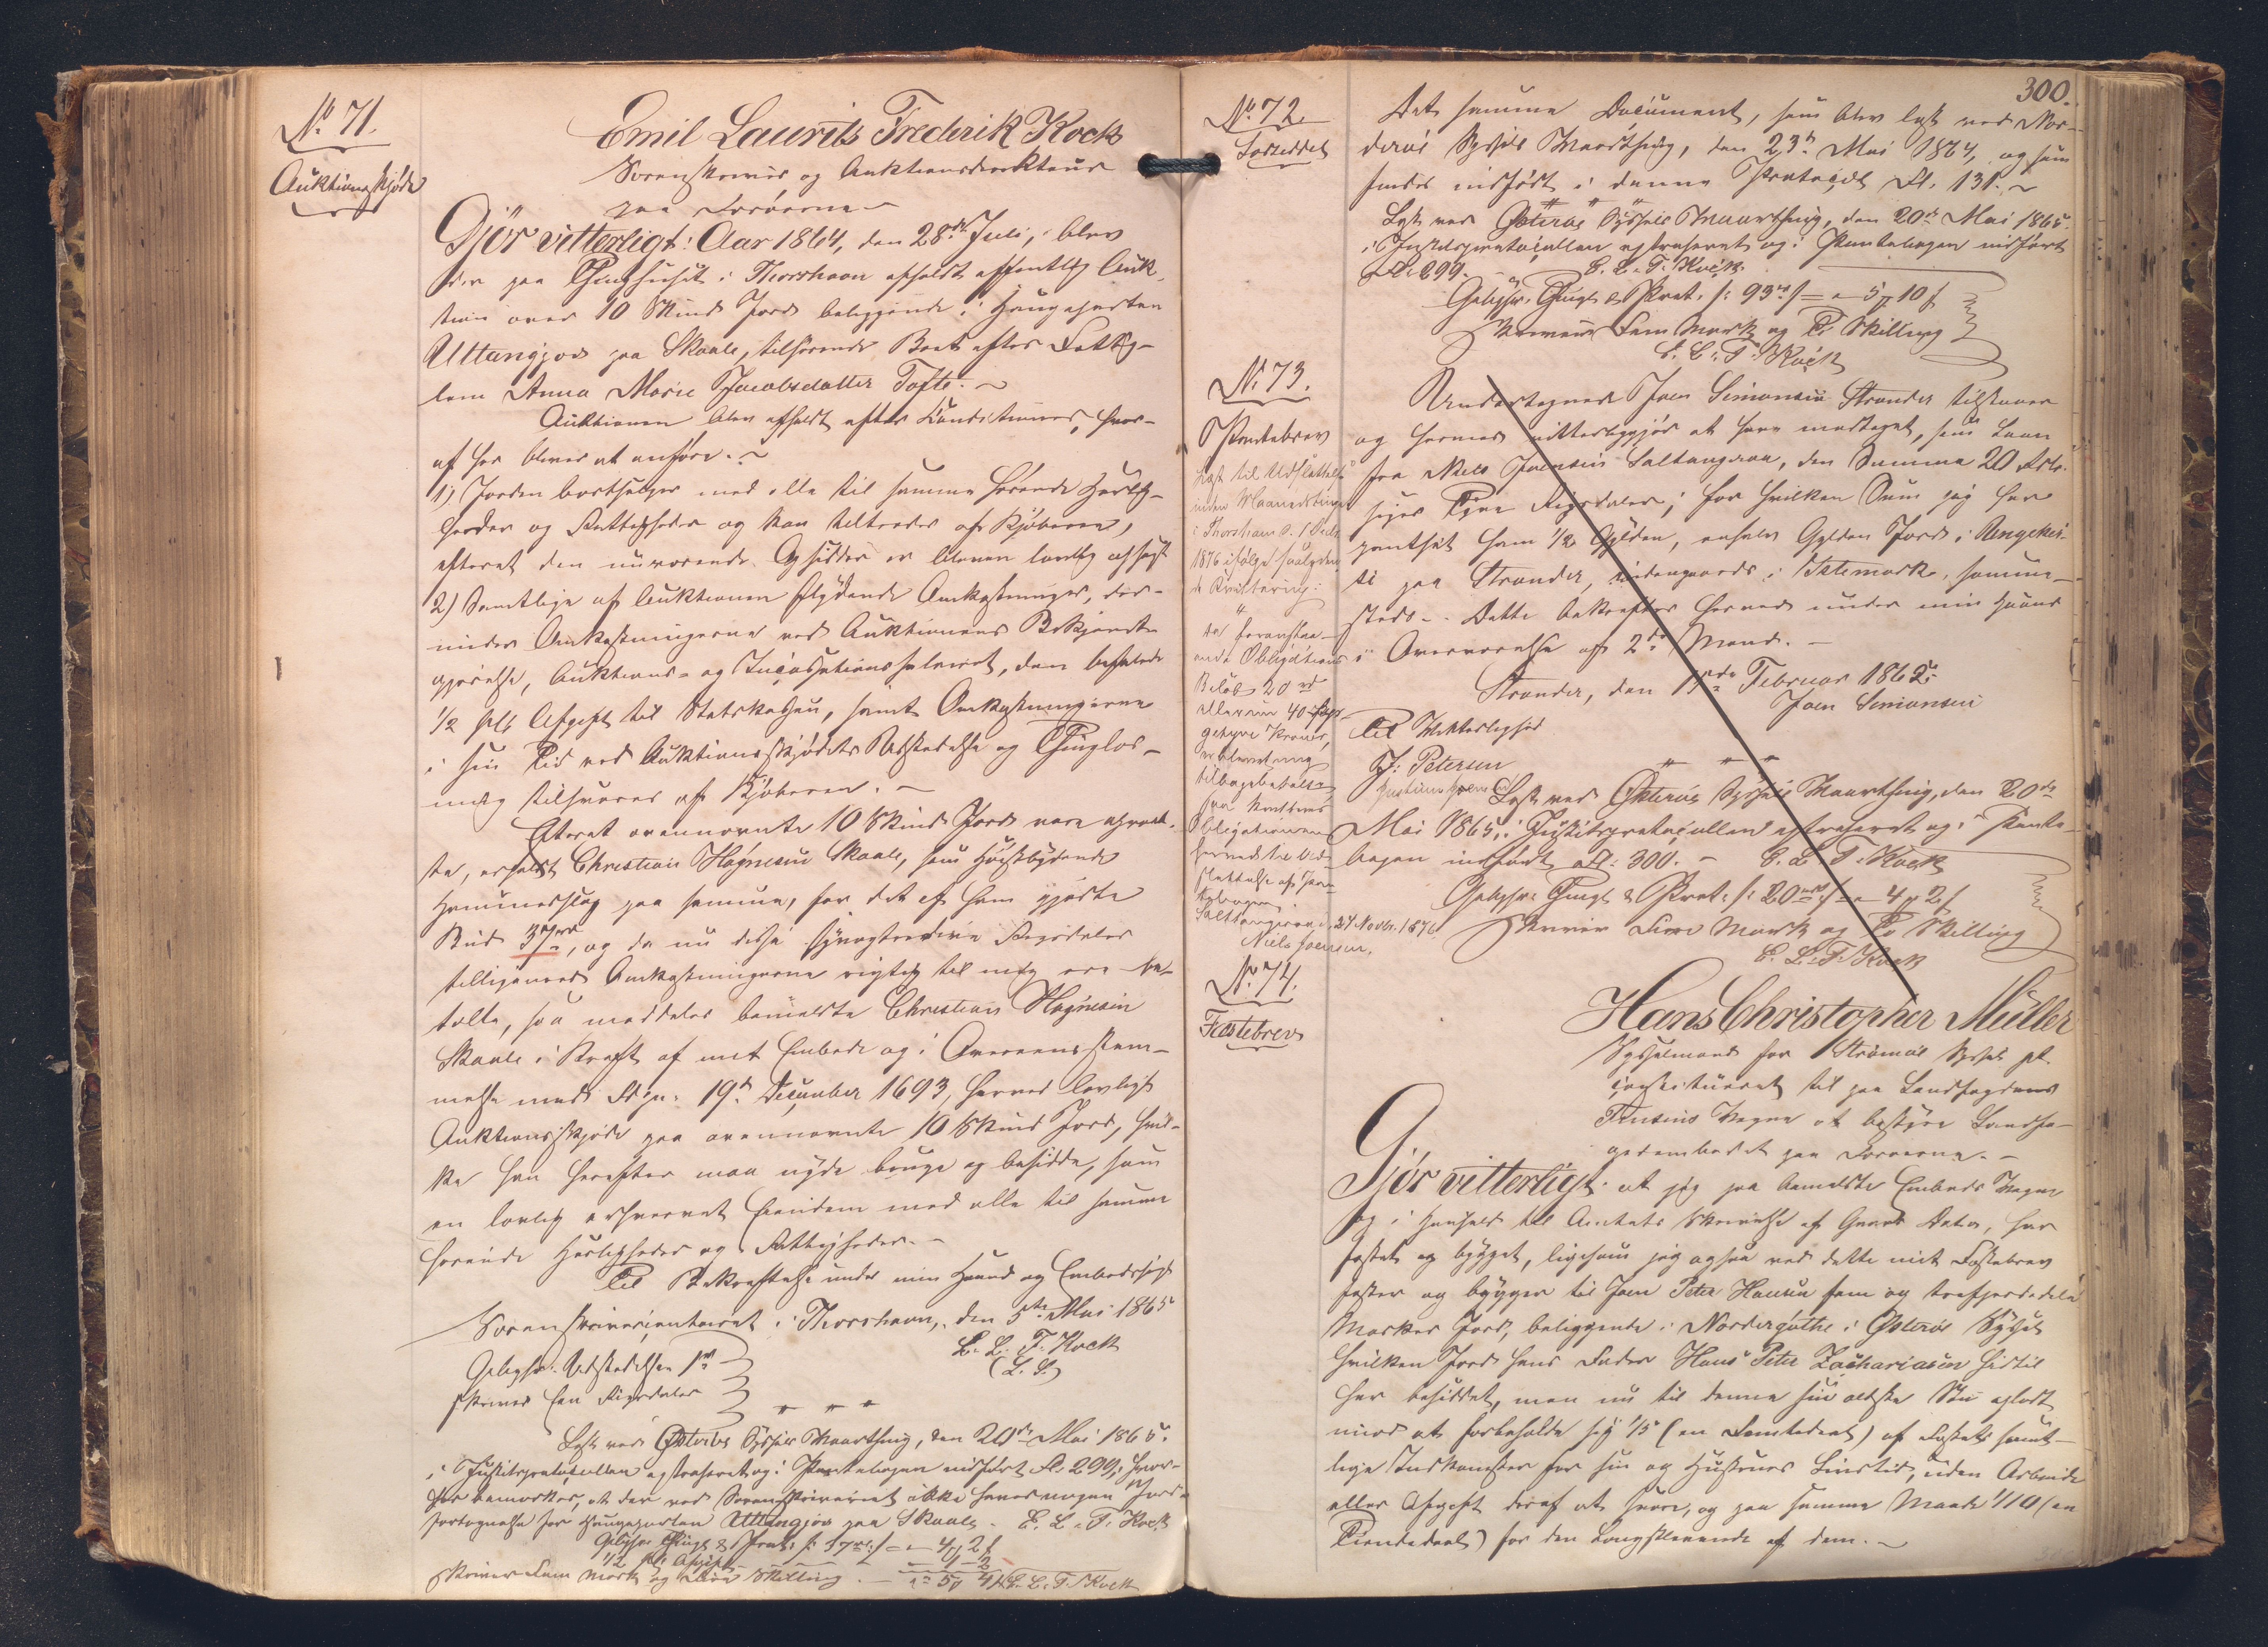 No 71.
Auktionsskjøde
Emil Laurits Frederik Kock
Sorenskriver og Auktionsdirekteur
paa Færøerne
Gjör vitterligt: Aar 1864, den 28de Juli, blev
der paa Thinghuset i Thorshavn afholdt offentlig Auk-
tion over 10 Skind Jord beliggende i Haugeparten
Uttangjov paa Skaale, tilhørende Boet efter Fattig-
lem Anna Marie Jacobsdatter Tofte.
Auktionen blev afholdt efter Conditioner, hvor-
af her bliver at anføre.
1) Jorden bortsælges med alle til samme hørende Herlig-
heder og Rettigheder og kan tiltrædes af Kjøberen,
efterat den nuværende Opsidder er bleven lovlig opsagt
2) Samtlige af Auktionen flydende Omkostninger, der-
under Omkostningerne ved Auktionens Bekjendt-
gjørelse, Auktions- og Incassationssalairet, den befalede
1/2 pCt Afgift til Statskassen, samt Omkostningerne
i sin Tid ved Auktionsskjødets Udstedelse og Thinglæs-
ning tilsvares af Kjøberen.
Efterat ovennævnte 10 Skind Jord vare opraab-
te, erholdt Christian Høgnesen Skaale, som Høistbydende
Hammerslag paa samme, for det af ham gjorte
Bud 37rd, og da nu disse syvogtredive Rigsdaler
tilligemed Omkostningerne rigtig til mig ere be-
talte, saa meddeles bemeldte Christian Høgnesen
Skaale i Kraft af mit Embede og i Overeensstem-
melse med Fdgn. 19de December 1693, herved lovligt
Auktionsskjøde paa ovennævnte 10 Skind Jord, hvil-
ke han herefter maa nyde bruge og besidde, som
en lovlig erhvervet Eiendom med alle til samme
hørende Herligheder og Rettigheder.
Til Bekræftelse under min Haand og Embedssegl
Sorenskrivercontoiret i Thorshavn, den 5te Mai 1865
E. L. F. Kock
(L. S.)
Gebyhr. Udstedelsen 1rd
skriver Een Rigsdaler
Læst ved Østerøes Syssels Vaarthing, den 20de Mai 1865.
i Justitsprotocollen extraheret og i Pantebogen indført Fl. 299, hvor-
hos bemærkes, at der ved Sorenskriveriet ikke haves nogen Jord-
fortegnelse for Haugeparten Uttangjov paa Skaale. E. L. F. Kock
Gebyhr Thingl & Prot: /: 37rd :/ = 4 2 ß
1/2 pCt Afgift
skriver Fem Mark og Fire Skilling. E. L. F. Kock
300.
No 72.
Lodseddel
Det samme Document, som blev læst ved Nor-
derøe Syssels Vaarthing, den 23de Mai 1864, og som
findes indført i denne Protocol Fl. 131.
Læst ved Østerøes Syssels Vaarthing, den 20de Mai 1865.
i Justitsprotocollen extraheret og i Pantebogen indført
Fl. 299. E. L. F. Kock.
Gebyhr. Thingl & Prot. /: 93rd :/ = 5 10 ß
skriver Fem Mark og Ti Skilling
E. L. F. Kock
No 73.
Pantebrev
Læst til Udslettelse
inden Maanedsthinget
i Thorshavn d. 1 Decbr
1876 ifølge saalyden-
de Kvittering:
foranstaa-
ende Obligations
Beløb 20 rd
ellerum 40
getyve Kroner,
er bleven mig
tilbagebetalt
Obligationen
herved til Ud-
slettelse af Pan-
tebogen.
Saltangeraa d. 27 Novbr. 1876
Niels Joensen.
Undertegnede Joen Simonsen Strander tilstaaer
og hermed vitterliggjør at have modtaget, som Laan
fra Niels Joensen Saltangeraa, den Summa 20 Rdlr.
siger Tyve Rigsdaler; for hvilken Sum jeg har
pantsat ham 1/2 Gylden, enhalv Gylden Jord i
paa Strander, indengaards i samme-
steds. Dette bekræftes herved under min Haand
i Overværelse af 2de Mænd.
Strander, den Februar 1865
Joen Simonsen
Til Vitterlighed
J. Petersen
Læst ved Østerøes Syssels Vaarthing, den 20de
Mai 1865, i Justitsprotocollen extraheret og i Pante-
bogen indført Fl. 300. E. L. F. Kock
Gebyhr. Thingl & Prot: /: 20rd :/ = 4 2 ß
skriver Fire Mark og To Skilling
E. L. F. Kock
No 74.
Fæstebrev
Hans Christopher Müller
Sysselmand for Strømøe Syssel pt.
constitueret til paa Landfogdens
Vegne at bestyre Landfo-
gedembedet paa Færøerne.
Gjör vitterligt: at jeg paa bemeldte Embeds Vegne
og i Henhold til Amtets Skrivelse af Gaars Dato, har
fæstet og bygget, ligesom jeg ogsaa ved dette mit Fæstebrev
fæster og bygger til Joen Peter Hansen fem og trefjerdedele
Marker Jord, beliggende i Nordregøthe i Østerøe Syssel
hvilken Jord hans Fader Hans Peter Zachariasen hidtil
har besiddet, men nu til denne sin ældste Søn opladt
mod at forbeholde sig 1/5 (en Femtedeel) af Fæstets samt-
lige Indkomster for sin og Hustrues Livstid, uden Arbeide
eller Afgift deraf at svare, og paa samme Maade 1/10 (en
Tiendedeel) for den Længstlevende af dem.